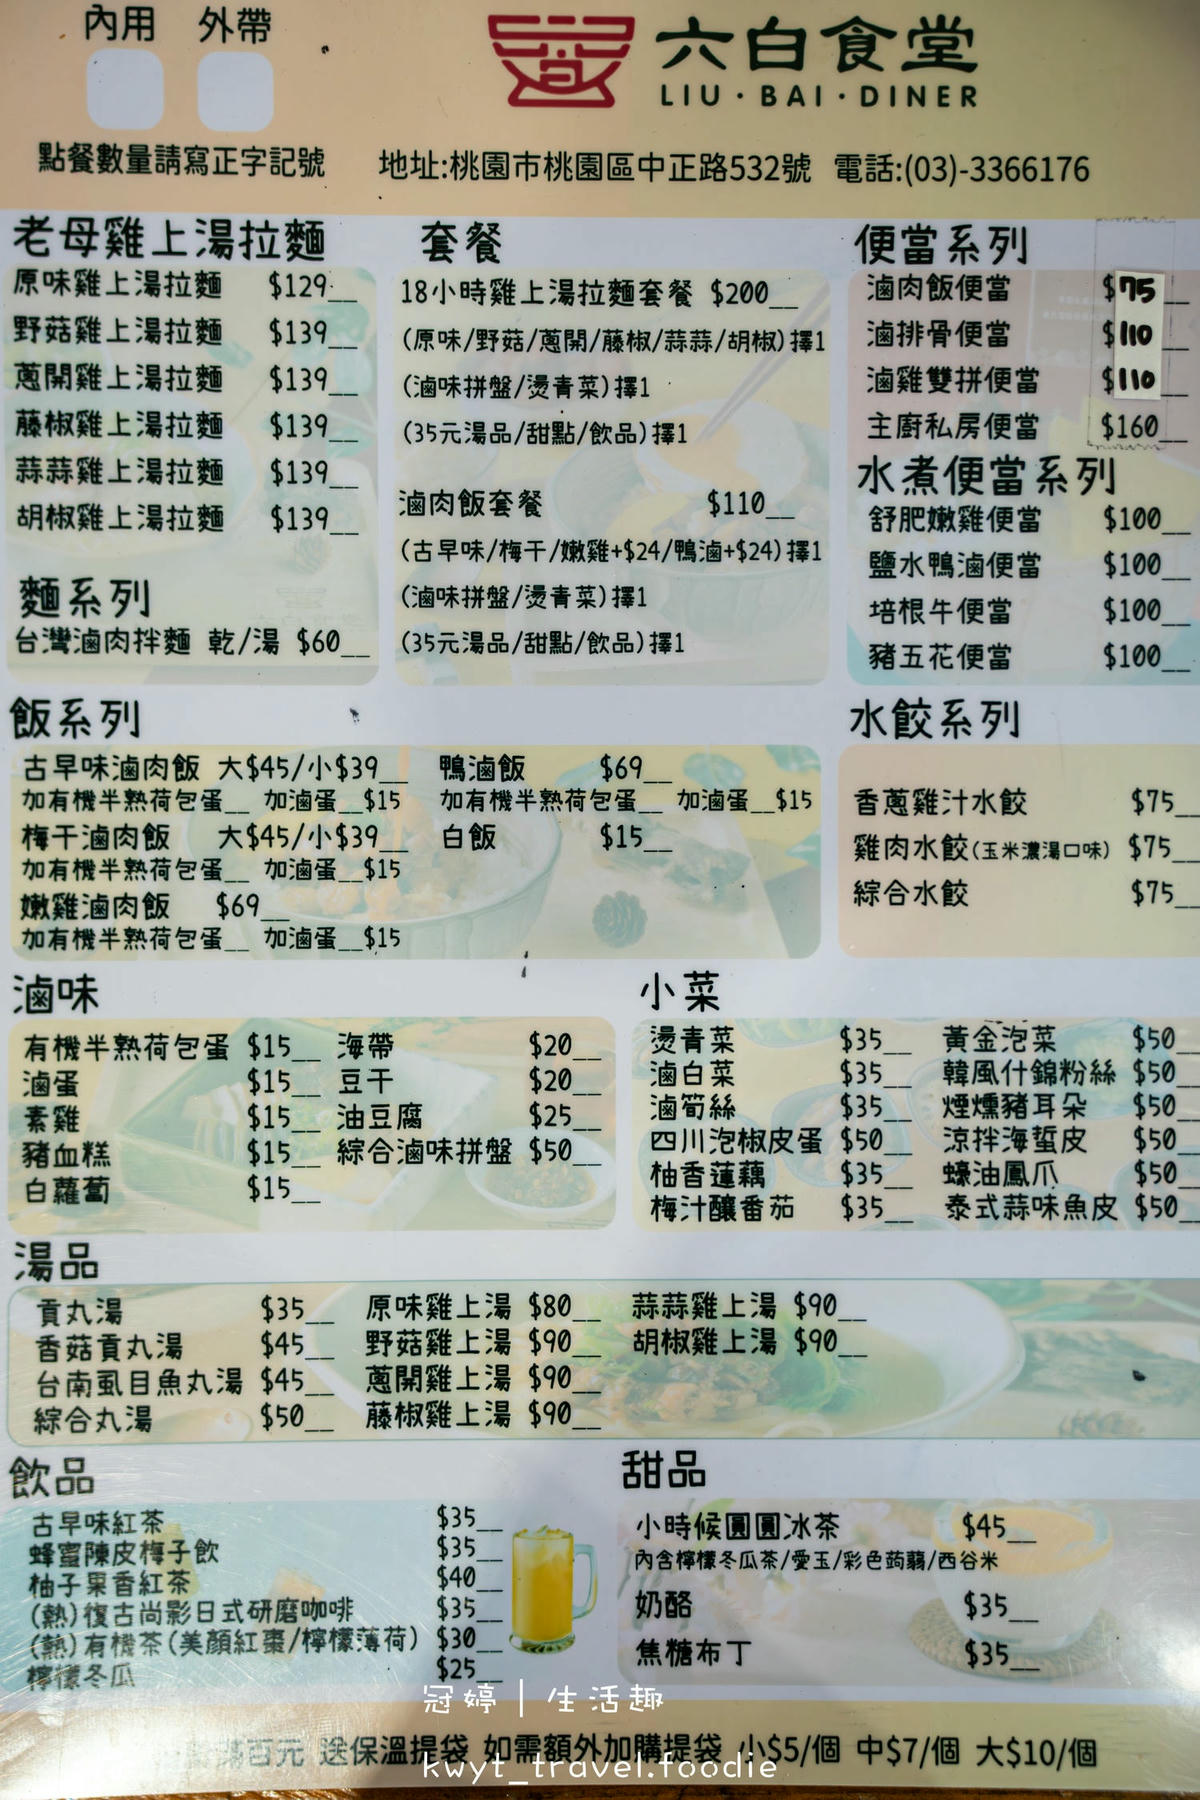 內用 外帶
六白食堂
LIU·BAI·DINER
點餐數量請寫正字記號 地址:桃園市桃園區中正路532號 電話:(03)-3366176
老母雞上湯拉麵
原味雞上湯拉麵 $129__
野菇雞上湯拉麵 $139__
蔥開雞上湯拉麵 $139__
藤椒雞上湯拉麵 $139__
蒜蒜雞上湯拉麵 $139__
胡椒雞上湯拉麵 $139__
麵系列
台灣滷肉拌麵 乾/湯 $60__
套餐
18小時雞上湯拉麵套餐 $200__
(原味/野菇/蔥開/藤椒/蒜蒜/胡椒)擇1
(滷味拼盤/燙青菜)擇1
(35元湯品/甜點/飲品)擇1
滷肉飯套餐 $110__
(古早味/梅干/嫩雞+$24/鴨滷+$24)擇1
(滷味拼盤/燙青菜)擇1
(35元湯品/甜點/飲品)擇1
便當系列
滷肉飯便當 $75__
滷排骨便當 $110__
滷雞雙拼便當 $110__
主廚私房便當 $160__
水煮便當系列
舒肥嫩雞便當 $100__
鹽水鴨滷便當 $100__
培根牛便當 $100__
豬五花便當 $100__
飯系列
古早味滷肉飯 大$45/小$39__
加有機半熟荷包蛋__ 加滷蛋__$15
梅干滷肉飯 大$45/小$39__
加有機半熟荷包蛋__ 加滷蛋__$15
嫩雞滷肉飯 $69__
加有機半熟荷包蛋__ 加滷蛋__$15
鴨滷飯 $69__
加有機半熟荷包蛋__ 加滷蛋__$15
白飯 $15__
水餃系列
香蔥雞汁水餃 $75__
雞肉水餃(玉米濃湯口味) $75__
綜合水餃 $75__
滷味
有機半熟荷包蛋 $15__ 海帶 $20__
滷蛋 $15__ 豆干 $20__
素雞 $15__ 油豆腐 $25__
豬血糕 $15__ 綜合滷味拼盤 $50__
白蘿蔔 $15__
小菜
燙青菜 $35__ 黃金泡菜 $50__
滷白菜 $35__ 韓風什錦粉絲 $50__
滷筍絲 $35__ 煙燻豬耳朵 $50__
四川泡椒皮蛋 $50__ 涼拌海蜇皮 $50__
柚香蓮藕 $35__ 蠔油鳳爪 $50__
梅汁釀番茄 $35__ 泰式蒜味魚皮 $50__
湯品
貢丸湯 $35__ 原味雞上湯 $80__ 蒜蒜雞上湯 $90__
香菇貢丸湯 $45__ 野菇雞上湯 $90__ 胡椒雞上湯 $90__
台南虱目魚丸湯 $45__ 蔥開雞上湯 $90__
綜合丸湯 $50__ 藤椒雞上湯 $90__
飲品
古早味紅茶 $35__
蜂蜜陳皮梅子飲 $35__
柚子果香紅茶 $40__
(熱)復古尚影日式研磨咖啡 $35__
(熱)有機茶(美顏紅棗/檸檬薄荷) $30__
檸檬冬瓜 $25__
甜品
小時候圓圓冰茶 $45__
內含檸檬冬瓜茶/愛玉/彩色蒟蒻/西谷米
奶酪 $35__
焦糖布丁 $35__
冠婷 | 生活趣
百元 送保溫提袋 如需額外加購提袋 小$5/個 中$7/個 大$10/個
kwyt_travel.foodie